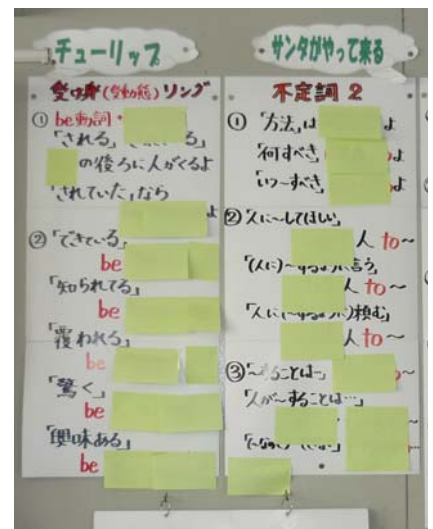 チューリップ
受け身(受動態)ソング
① be動詞+
「される」
の後ろに人がくるよ
「されていた」なら
よ
② 「できている」
be
「知られてる」
be
「覆われる」
be
「驚く」
be
「興味ある」
be
サンタがやって来る
不定詞2
① 「方法」は よ
「何すべき」 よ
「いつ~すべき」 よ
② 人に~してほしい」
人 to~
「(人に)~するように言う」
人 to~
「人に(~するように)頼む」
人 to~
③ 「~することは…」 ~
「人が~することは…」